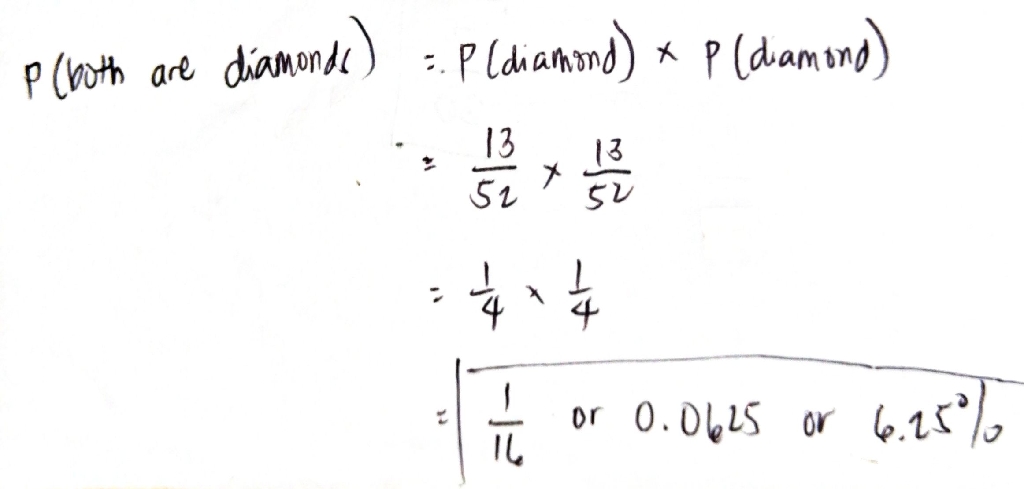 P (both are diamonds) = P (diamond) × P (diamond)
= 13/52 × 13/52
= 1/4 × 1/4
= 1/16 or 0.0625 or 6.25%